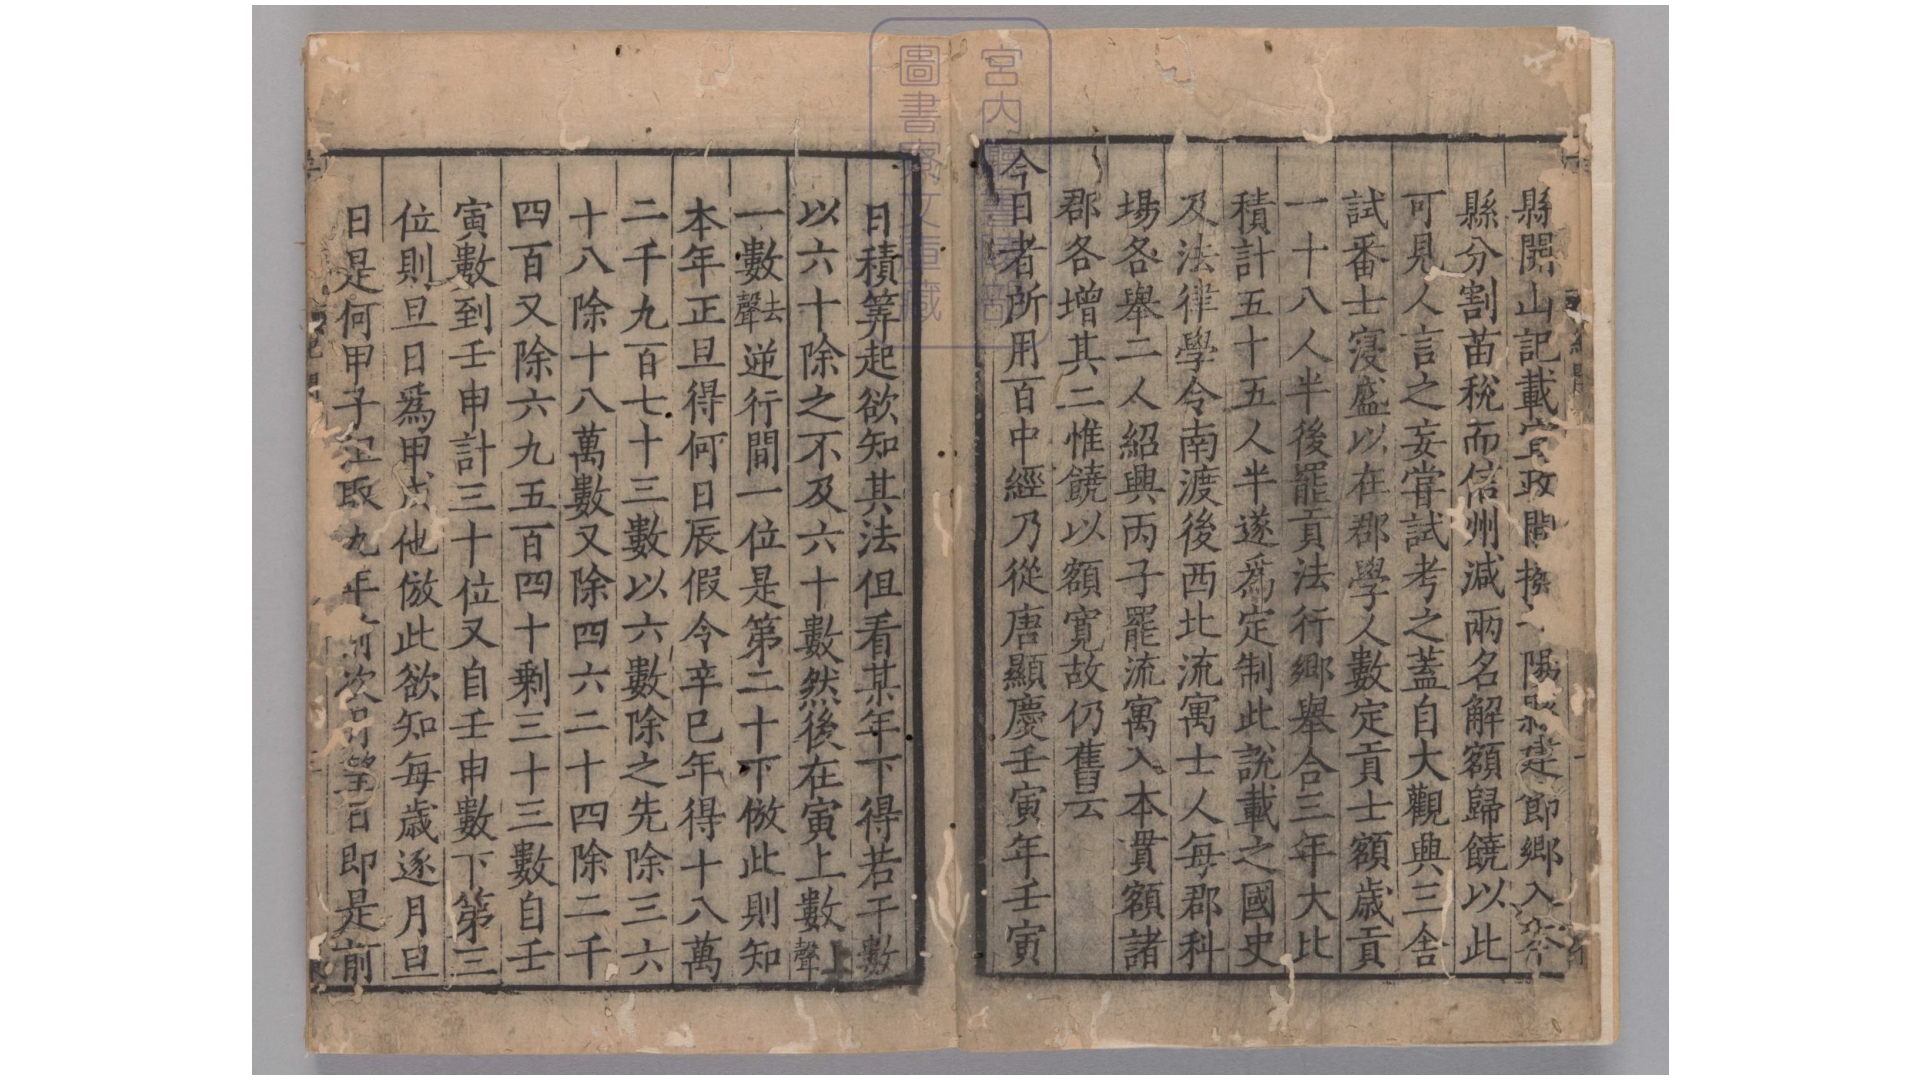 縣開山記載政間陽節鄉入
縣分割苗稅而信州減兩名解額歸饒以此
可見人言之妄甞試考之蓋自大觀興三舍
試番士寖盛以在郡學人數定貢士額歳貢
一十八人半後罷貢法行郷舉合三年大比
積計五十五人半遂爲定制此説載之國史
及法律學令南渡後西北流寓士人每郡科
塲各舉二人紹興丙子罷流寓入本貫額諸
郡各增其二惟饒以額寛故仍舊云
今日者所用百中經乃從唐顯慶壬寅年壬寅
宮内廳書陵部
圖書寮文庫藏
日積筭起欲知其法但看某年下得若干數
以六十除之不及六十數然後在寅上數上聲
一數去聲逆行間一位是第二十下倣此則知
本年正旦得何日辰假令辛巳年得十八萬
二千九百七十三數以六數除之先除三六
十八除十八萬數又除四六二十四除二千
四百又除六九五百四十剩三十三數自壬
寅數到壬申計三十位又自壬申數下第三
位則旦日爲甲戌他倣此欲知每歳逐月旦
日是何甲子取九年前次月望日即是前